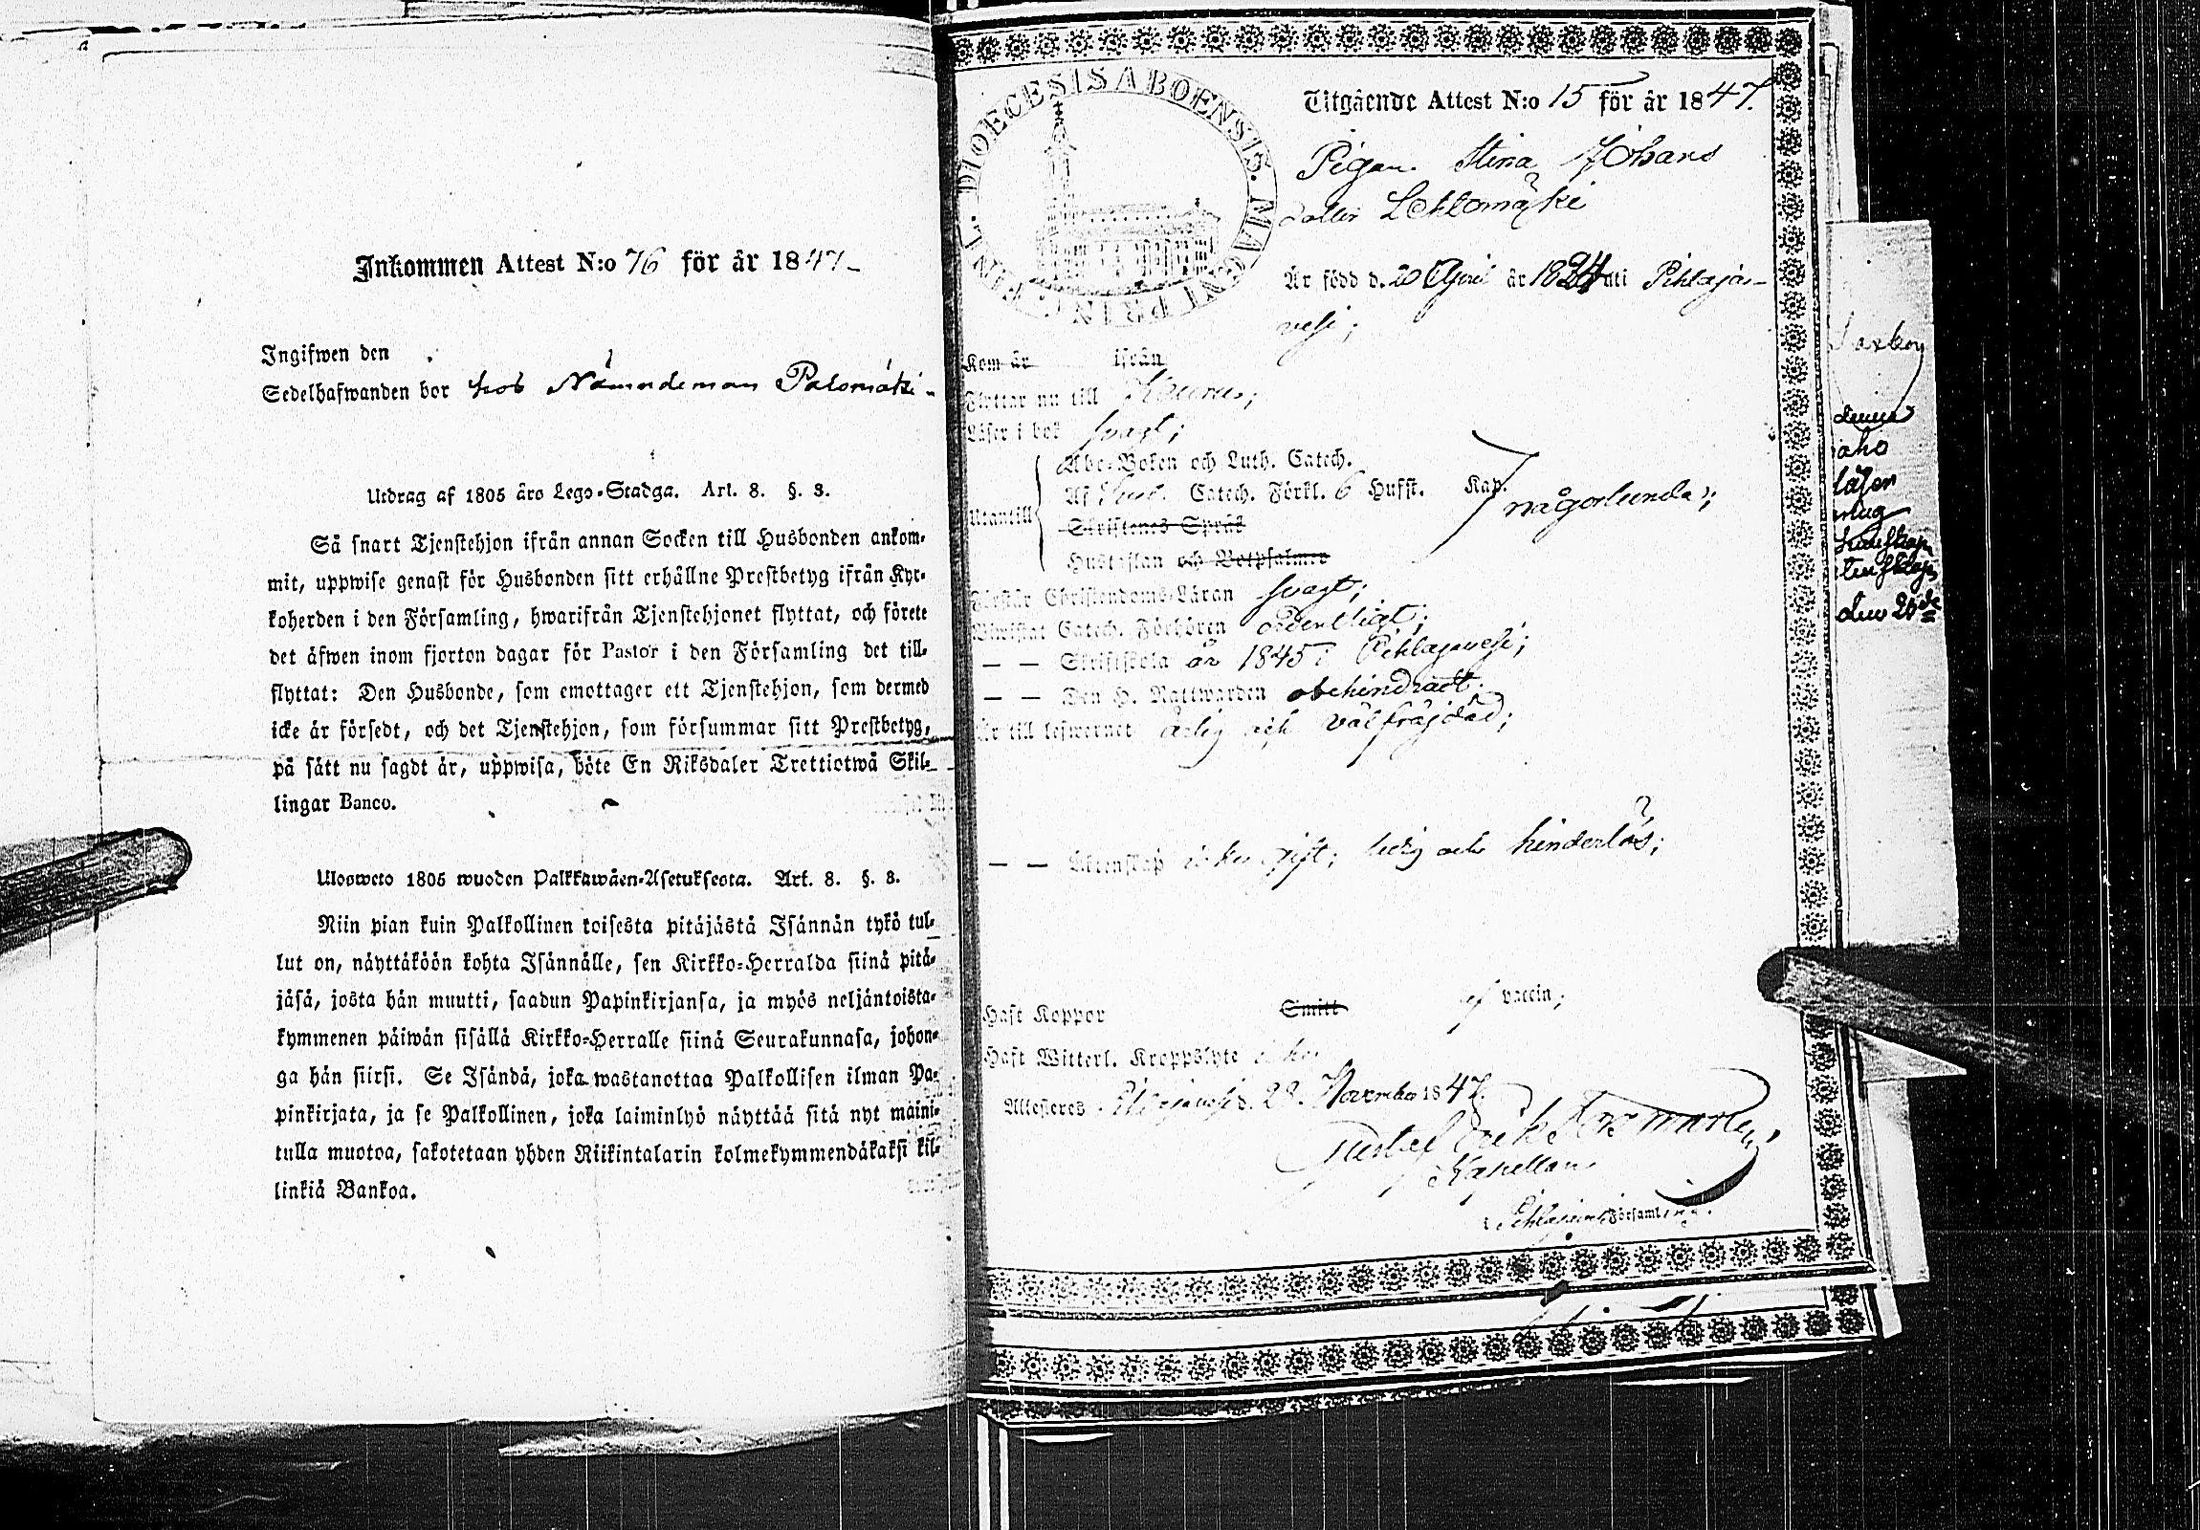 Inkommen Attest N:o 76 för år 1847
Ingifwen den
Sedelhafwanden bor hos Nämndeman Palomäki
Utdrag af 1805 års Lego-Stadga. Art. 8. §. 3.
Så snart Tjenstehjon ifrån annan Socken till Husbonden ankom-
mit, uppwise genast för Husbonden sitt erhållne Prestbetyg ifrån Kyr-
koherden i den Församling, hwarifrån Tjenstehjonet flyttat, och förete
det äfwen inom fjorton dagar för Pastor i den Församling det till-
flyttat: Den Husbonde, som emottager ett Tjenstehjon, som dermed
icke är försedt, och det Tjenstehjon, som försummar sitt Prestbetyg,
på sätt nu sagdt är, uppwisa, böte En Riksdaler Trettiotwå Skil-
lingar Banco.
Ulosweto 1805 wuoden Palkkawäen-Asetuksesta. Art. 8. §. 3.
Niin pian kuin Palkollinen toisesta pitäjästä Isännän tykö tul-
lut on, näyttäköön kohta Isännälle, sen Kirkko-Herralda siinä pitä-
jäsä, josta hän muutti, saadun Papinkirjansa, ja myös neljäntoista-
kymmenen päiwän sisällä Kirkko-Herralle siinä Seurakunnasa, johon-
ga hän siirsi. Se Isändä, joka wastanottaa Palkollisen ilman Pa-
pinkirjata, ja se Palkollinen, joka laiminlyö näyttää sitä nyt maini-
tulla muotoa, sakotetaan yhden Riikintalarin kolmekymmendäkaksi kil-
linkiä Bankoa.
DIOECESIS ABOENSIS. MAGNI PRINC. FINL.
Utgående Attest N:o 15 för år 1847.
Pigan Stina Johans
dotter Lehtomäki
Är född d. 20 April år 1824 uti Pihlajas-
vesi;
Kom år ifrån
Flyttar nu till Keuru;
Läser i bok svagt;
Abc-Boken och Luth. Catech.
Af Catech. Förkl. 6 Hufst. Kap.
Utantill någorlunda;
Skriftenes Språk
Hustaflan och Botpsalmer
Förstår Christendoms-Läran svagt;
Bevistat Catech. Förhören ordentligt;
— — Skriftskola år 1845 i Pihlajavesi;
— — Den H. Nattwarden obehindradt.
Är till lefwernet ärlig och välfräjdad;
— — Äktenskap icke gift; ledig och hinderlös;
Haft Koppor Smitt af vaccin;
Haft Witterl. Kroppslyte icke
Attesteras Pihlajavesi d. 28 November 1847.
Gustaf Erik
Kapellan
i Pihlajavesi Församling.
denna
aho
den 20de